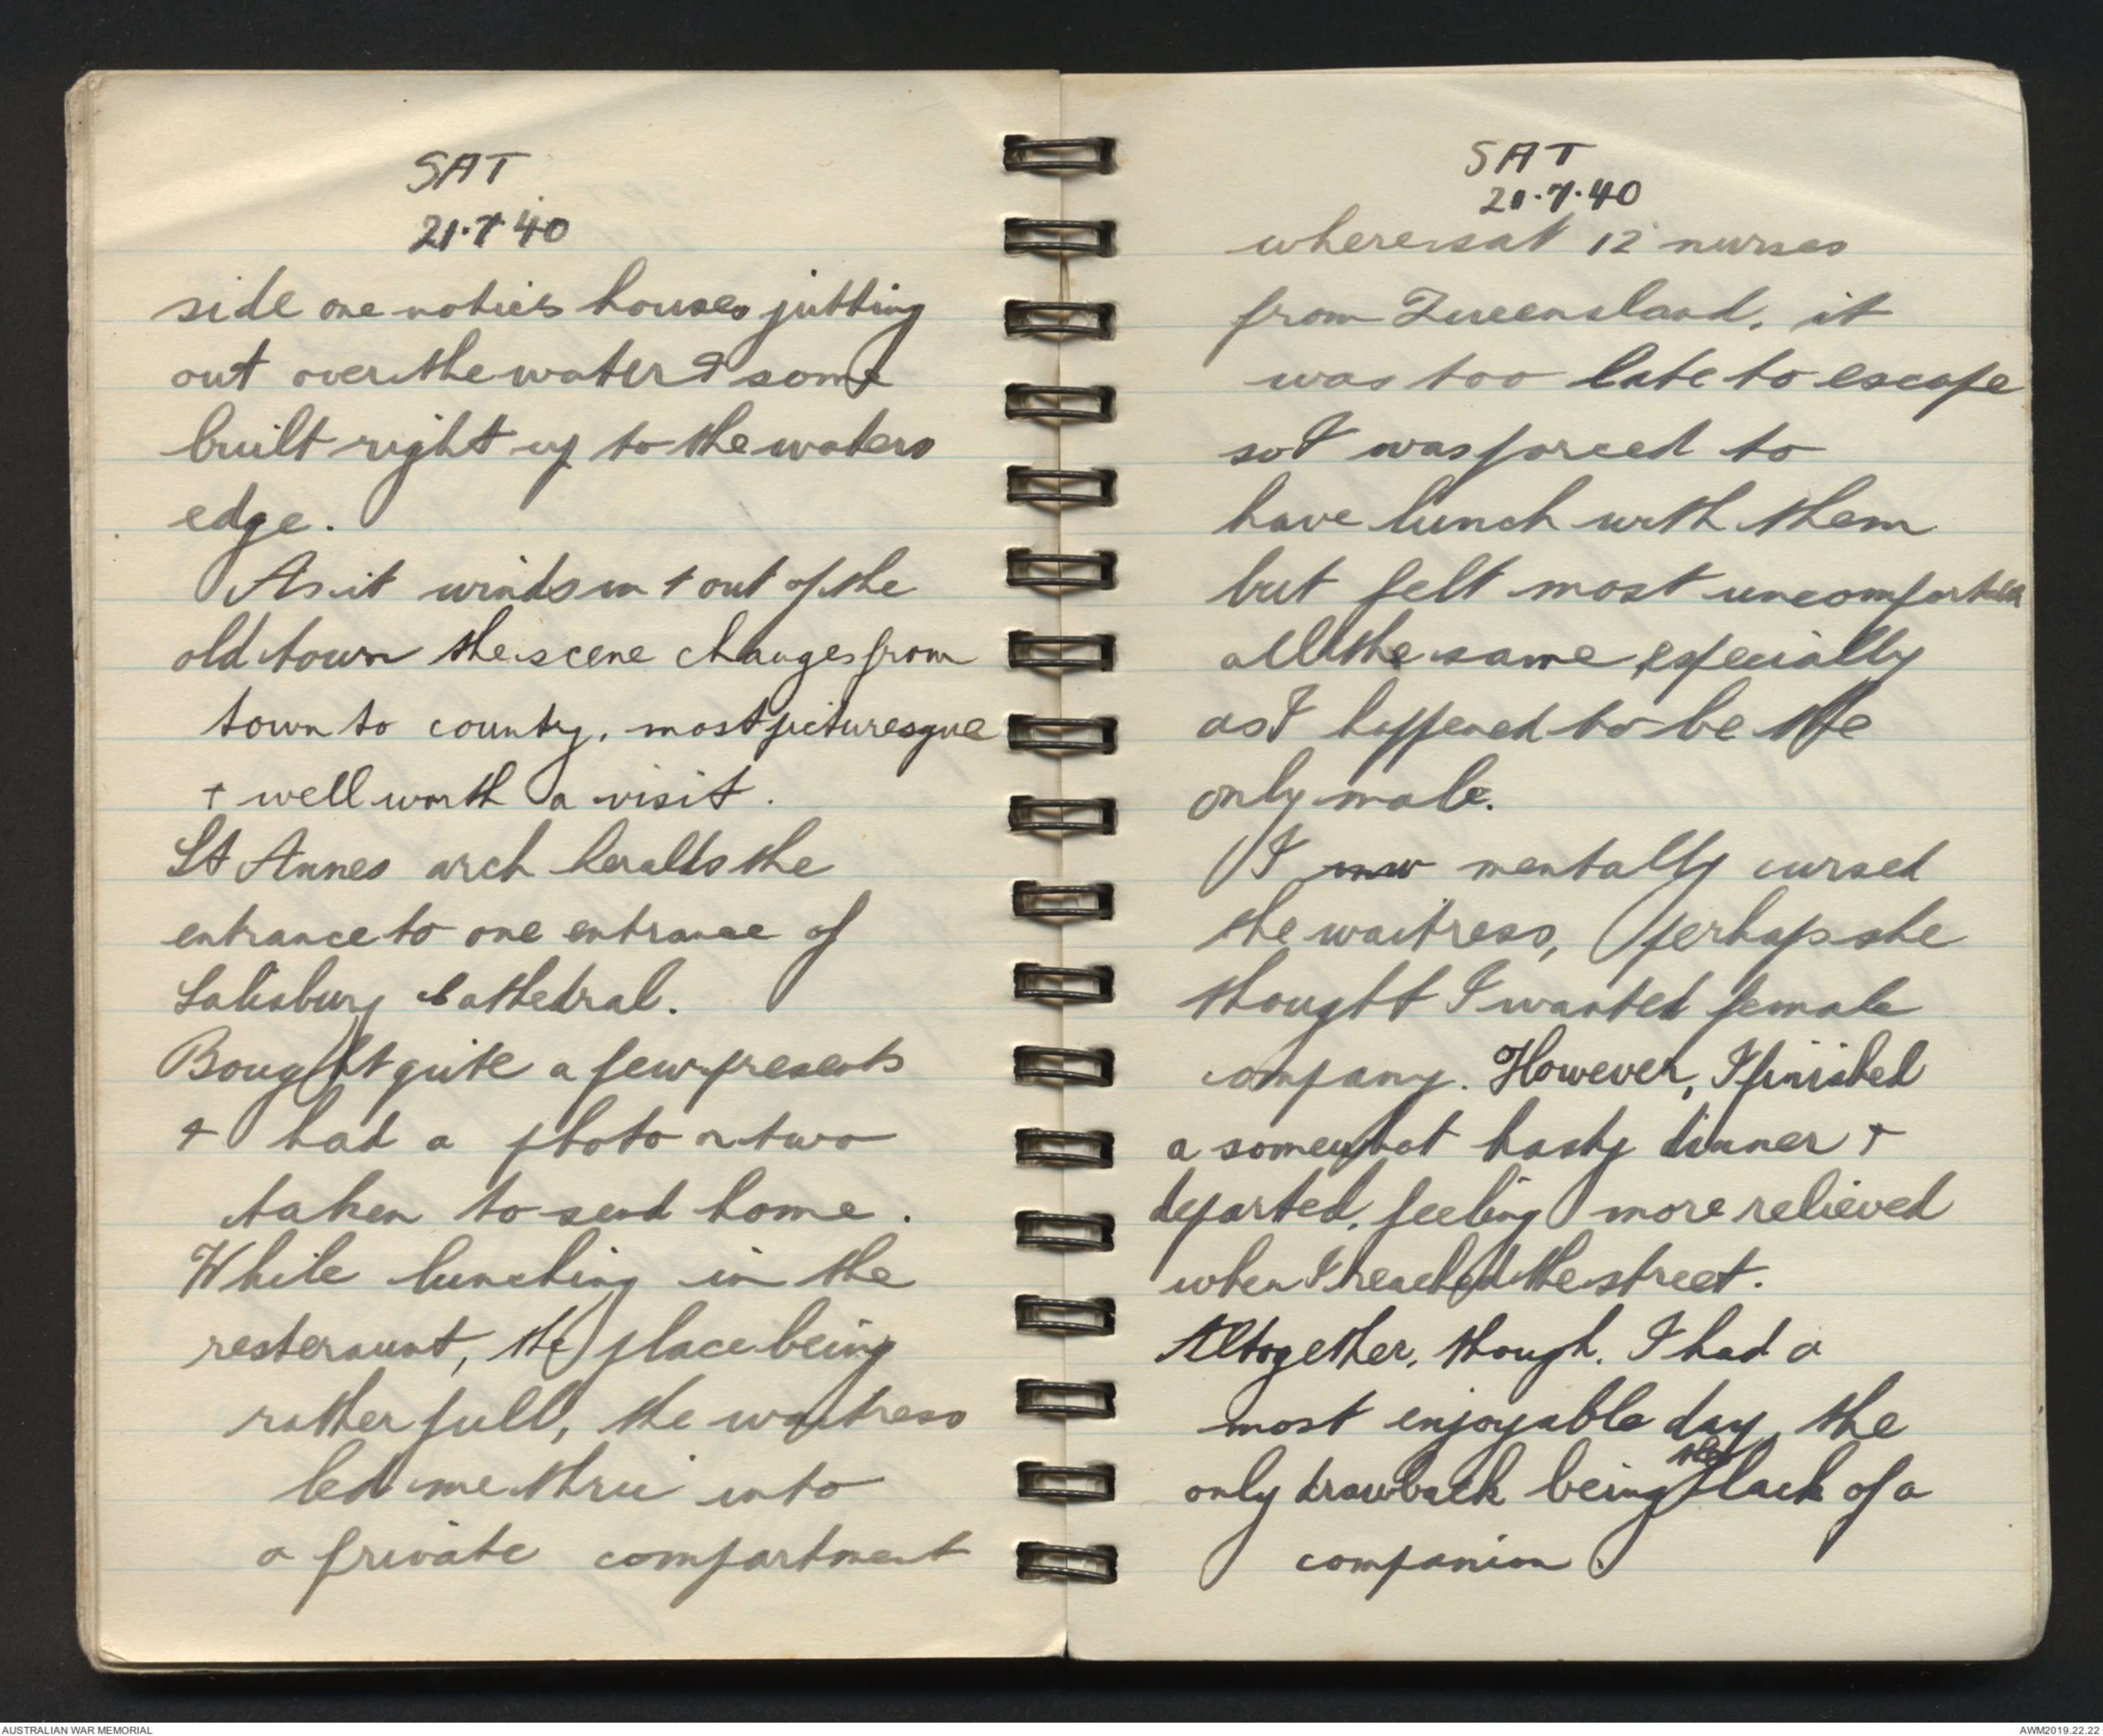 SAT
21.7.40
side one notices houses jutting
out over the water & some
built right up to the waters
edge.
As it winds in + out of the
old town the scene changes from
town to country, most picturesque
+ well worth a visit.
St Annes arch heralds the
entrance to one entrance of
Salisbury Cathedral.
Bought quite a few presents
+ had a photo or two
taken to send home.
While lunching in the
resteraunt, the place being
rather full, the waitress
led me thru into
a private compartment
SAT
21.7.40
where sat 12 nurses
from Queensland, it
was too late to escape
so I was forced to
have lunch with them
but felt most uncomfortable
all the same, especially
as I happened to be the
only male.
I mentally cursed
the waitress, perhaps she
thought I wanted female
company. However, I finished
a somewhat hasty dinner +
departed, feeling more relieved
when I reached the street.
Altogether, though, I had a
most enjoyable day, the
only drawback being the lack of a
companion.
AUSTRALIAN WAR MEMORIAL
AWM2019.22.22